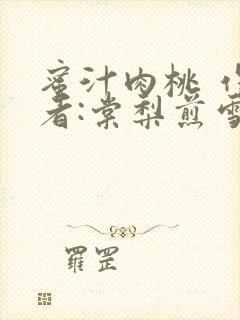 蜜汁肉桃 作
者:棠梨煎雪
羅罡